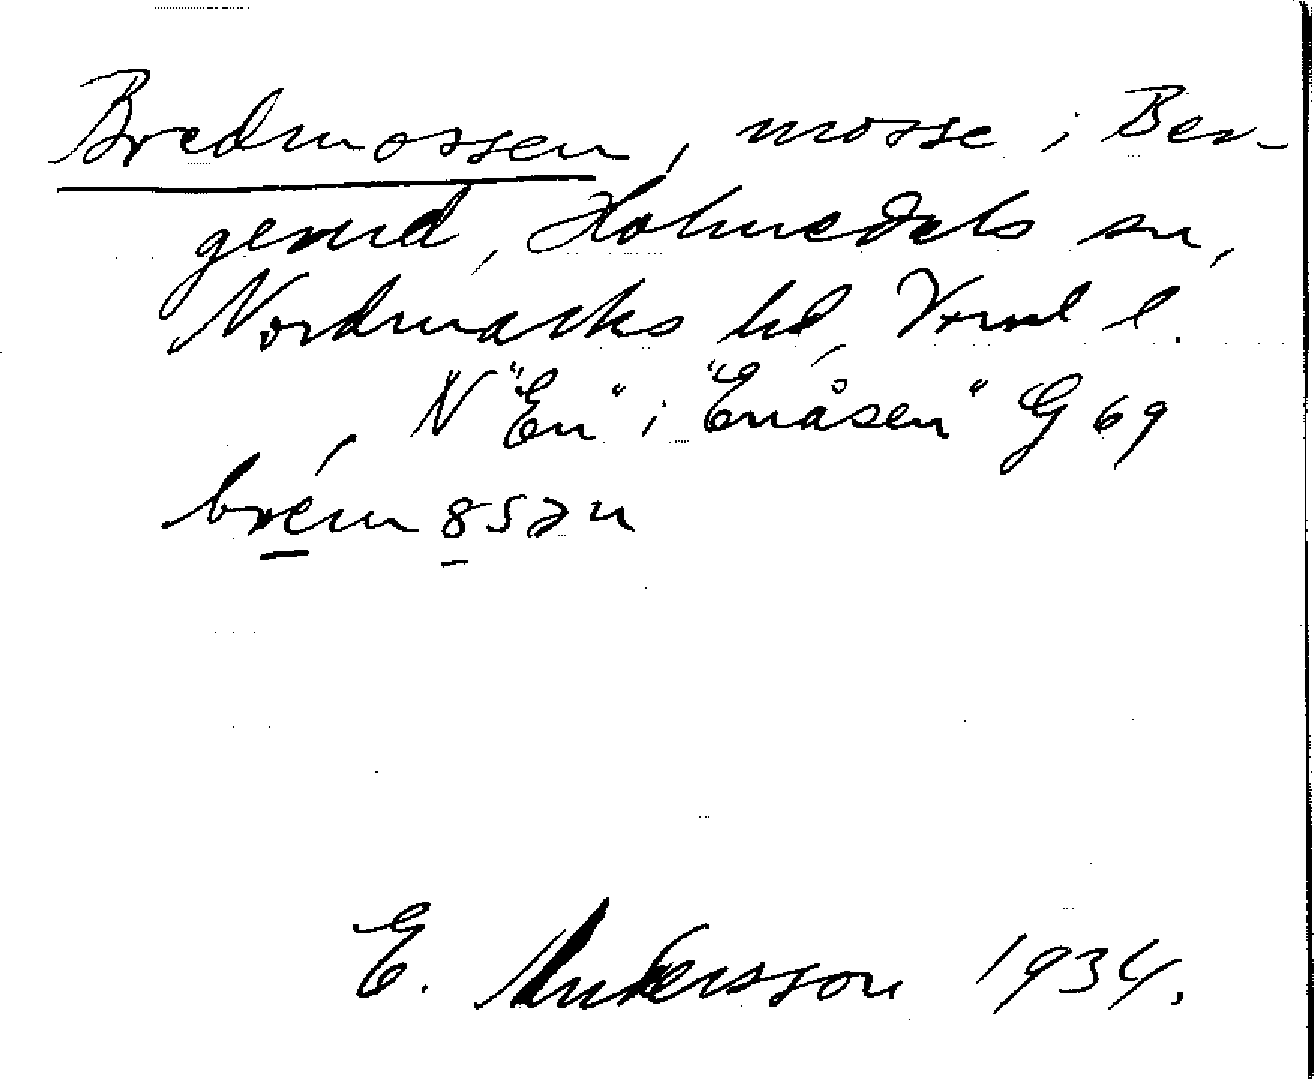 Bredmossen, mosse i Ben-
gerud, Holmedals sn,
Nordmarks hd, Värml l.
N "En" i "Enåsen" G 69
brém 8sən
E. Andersson 1934.